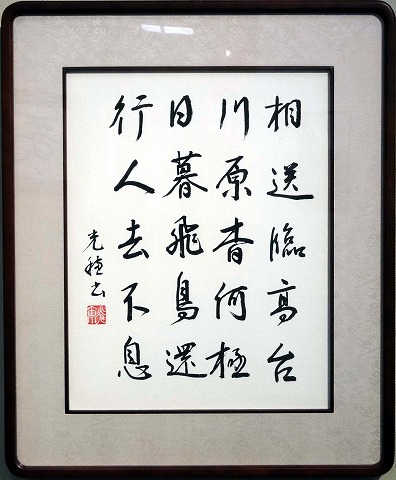 相送臨高台
川原杳何極
日暮飛鳥還
行人去不息
光穂书